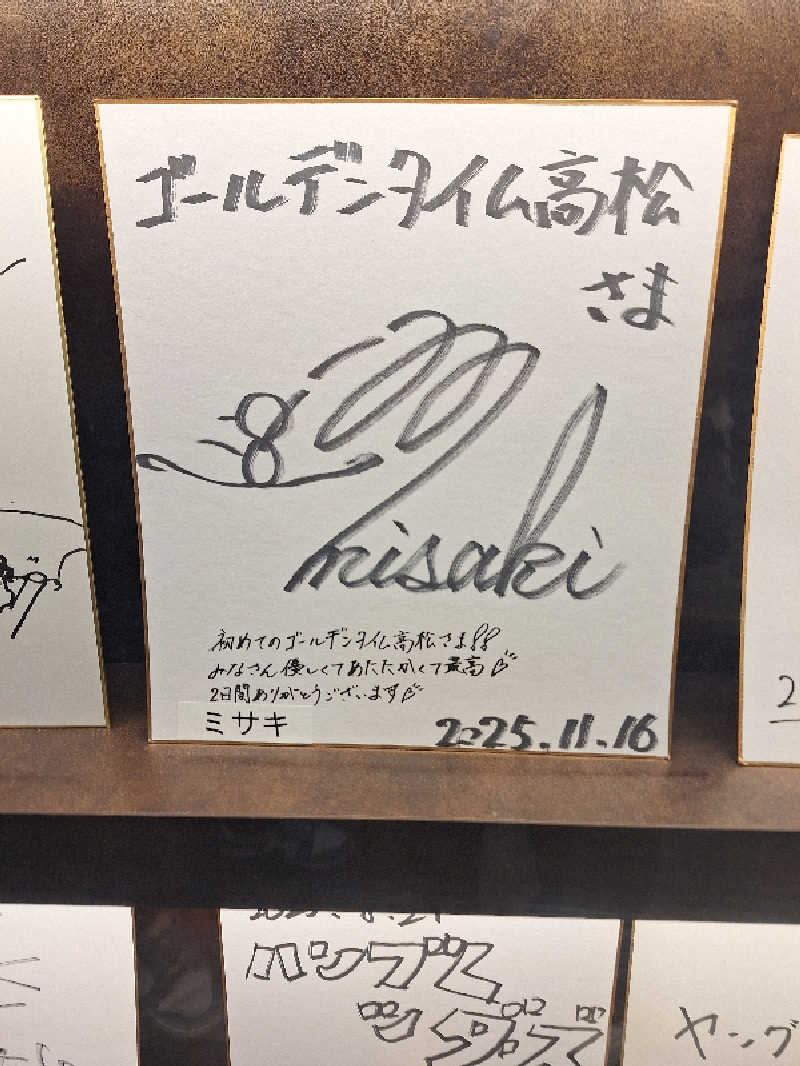 ゴールデンタイム高松
さま
misaki
初めてのゴールデンタイム高松さま!!
みなさん優しくてあたたかくて最高♡
2日間ありがとうございます♡
ミサキ
2025.11.16
2
ヤング